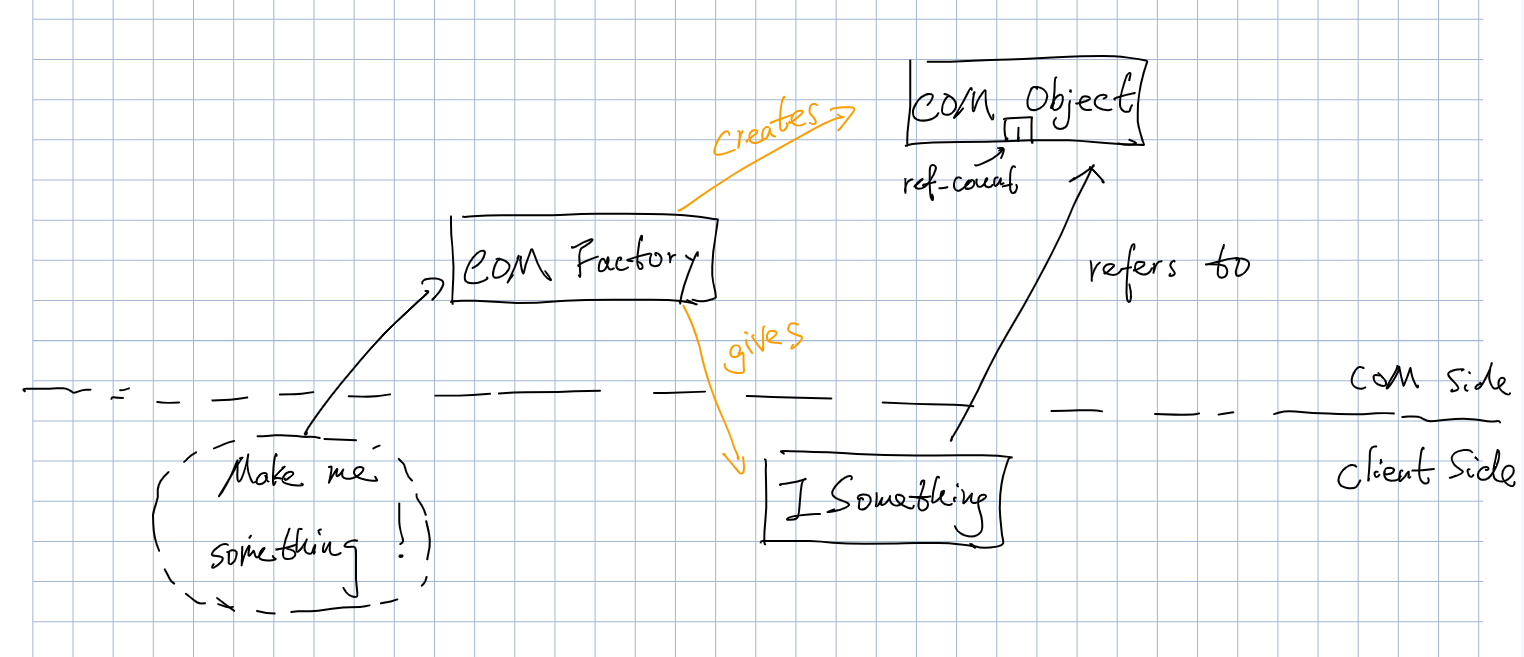 COM Object
1
creates
ref-count
COM Factory
refers to
gives
COM Side
Client Side
Make me
something !
I Something